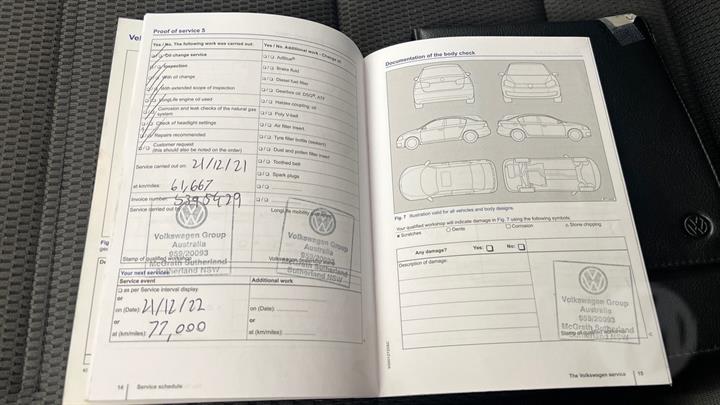 Proof of service 5
Yes / No. The following work was carried out:
Yes / No. Additional work - Change of:
Oil change service
Inspection
With oil change
With extended scope of inspection
LongLife engine oil used
Corrosion and leak checks of the natural gas
system
Check of headlight settings
Repairs recommended
Customer request
(this should also be noted on the order)
AdBlue®
Brake fluid
Diesel fuel filter
Gearbox oil: DSG®, ATF
Haldex coupling: oil
Poly V-belt
Air filter insert
Tyre filler bottle (sealant)
Dust and pollen filter insert
Toothed belt
Spark plugs
Service carried out on: 21/12/21
at km/miles: 61,667
Invoice number:
Service carried out by
LongLife mobility guarantee
Volkswagen Group
Australia
959/20093
McGrath Sutherland
Sutherland NSW
Stamp of qualified workshop
Volkswagen Group
Australia
959/20093
McGrath Sutherland
Sutherland NSW
Your next services
Service event
Additional work
as per Service interval display
or
on (Date): 21/12/22
on (Date):
or
or
at (km/miles): 77,000
at (km/miles):
14
Service schedule
Documentation of the body check
Fig. 7 Illustration valid for all vehicles and body designs.
Your qualified workshop will indicate damage in Fig. 7 using the following symbols:
Scratches
Dents
Corrosion
Stone chipping
Any damage?
Yes:
No:
Description of damage:
Volkswagen Group
Australia
959/20093
McGrath Sutherland
Sutherland NSW
Stamp of qualified workshop
The Volkswagen service
15